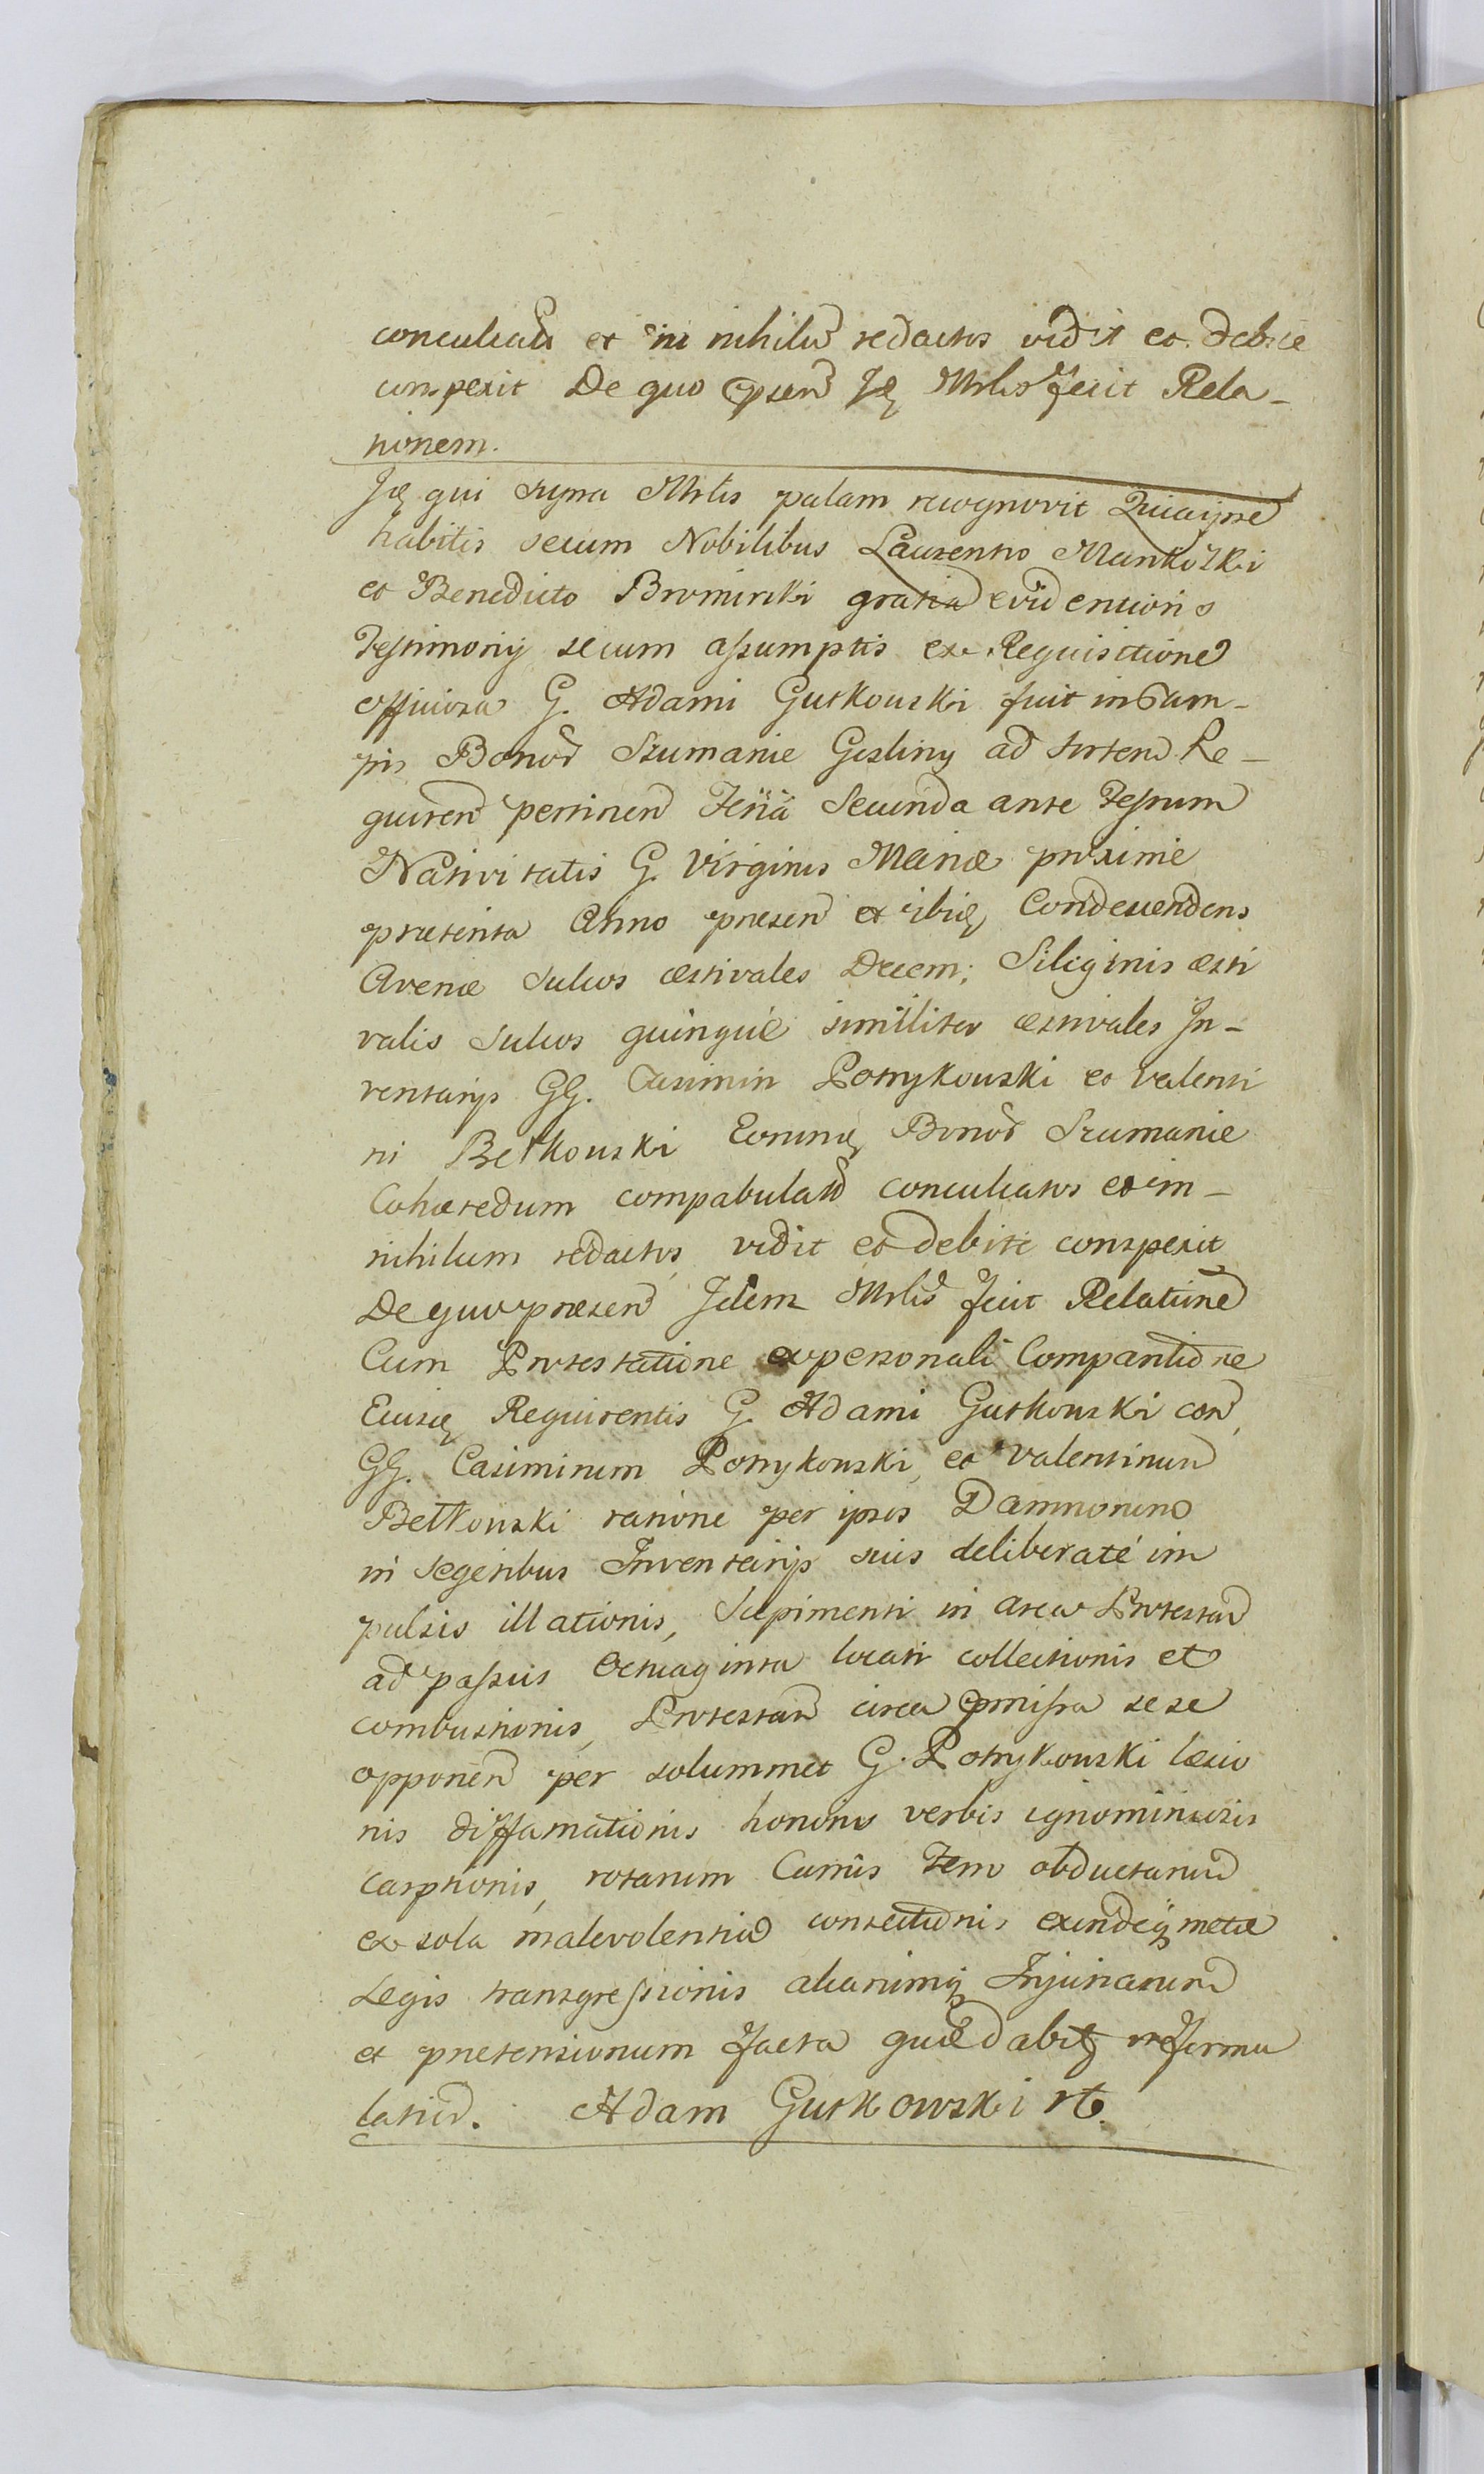 conculcatos et in nihilu redactos vidit et debite
conspexit De quo psen Jde Mrlis fecit Rela-
tionem.
Jde qui supra Mrlis palam recognovit Quia ipse
habitis secum Nobilibus Laurentio Mankoski
et Benedicto Bromirski gratia evidentioris
Testimonij secum assumptis ex Requisitione
officiosa G. Adami Gutkowski fuit in Cam-
pis Bonor Szumanie Gesliny ad Sortem Re-
quiren pertinen Feria Secunda ante Festum
Nativitatis G. Virginis Mariæ proxime
præterita Anno præsen et ibiq Condescendens
Avenæ Sulcos æstivales Decem; Siliginis æsti
valis Sulcos quinque similiter æstivales In-
ventarijs GG. Casimiri Potrykowski et Valenti
ni Betkowski Eorumq Bonor Szumanie
Cohæredum compabulatos conculcatos et in-
nihilum redactos vidit et debite conspexit
De quo præsen Jdem Mrlis fecit Relatione
Cum Protestatione ex personali Comparitione
Eiusdq Requirentis G. Adami Gutkowski con
GG. Casimirum Potrykowski et Valentinum
Betkowski ratione per ipsos Damnorum
in segetibus Inventarijs suis deliberate im
pulsis illationis, Sepimenti in area Protestan
ad passus Octuaginta locati collectionis et
combustionis, Protestan circa pmissa sese
opponen per solummet G. Potrykowski læsio
nis diffamationis honoris verbis ignominiosis
carptionis, rotarum Currûs Ferro obductarum
ex sola malevolentia consectionis exindeq metæ
Legis transgressionis aliarumq Injuriarum
et prætensionum facta quæ dabitq in formu
latiũd. Adam Gutkowski rt